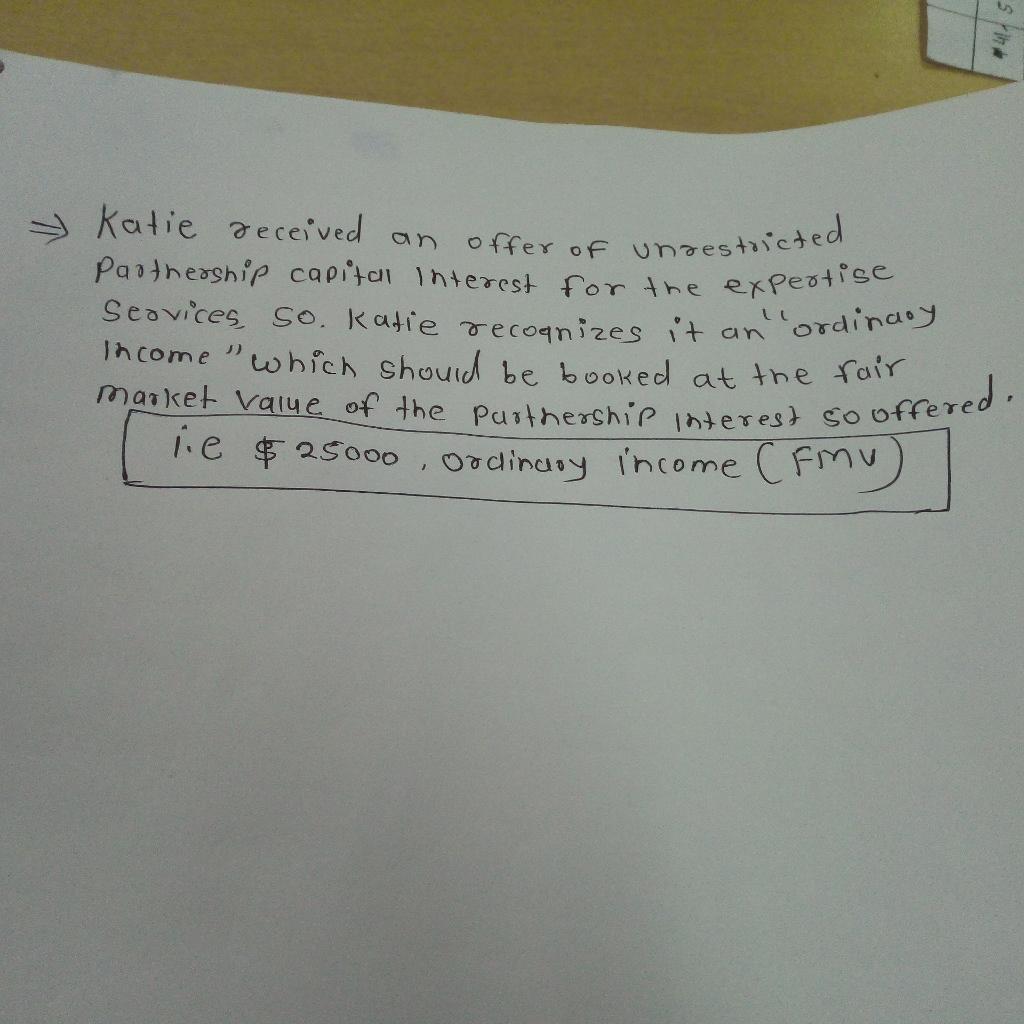 ⇒ Katie received an offer of unrestricted
Partnership capital Interest for the expertise
Services, so. Katie recognizes it an "ordinary
Income" which should be booked at the fair
market value of the partnership interest so offered.
i.e $ 25000, ordinary income (FMV)